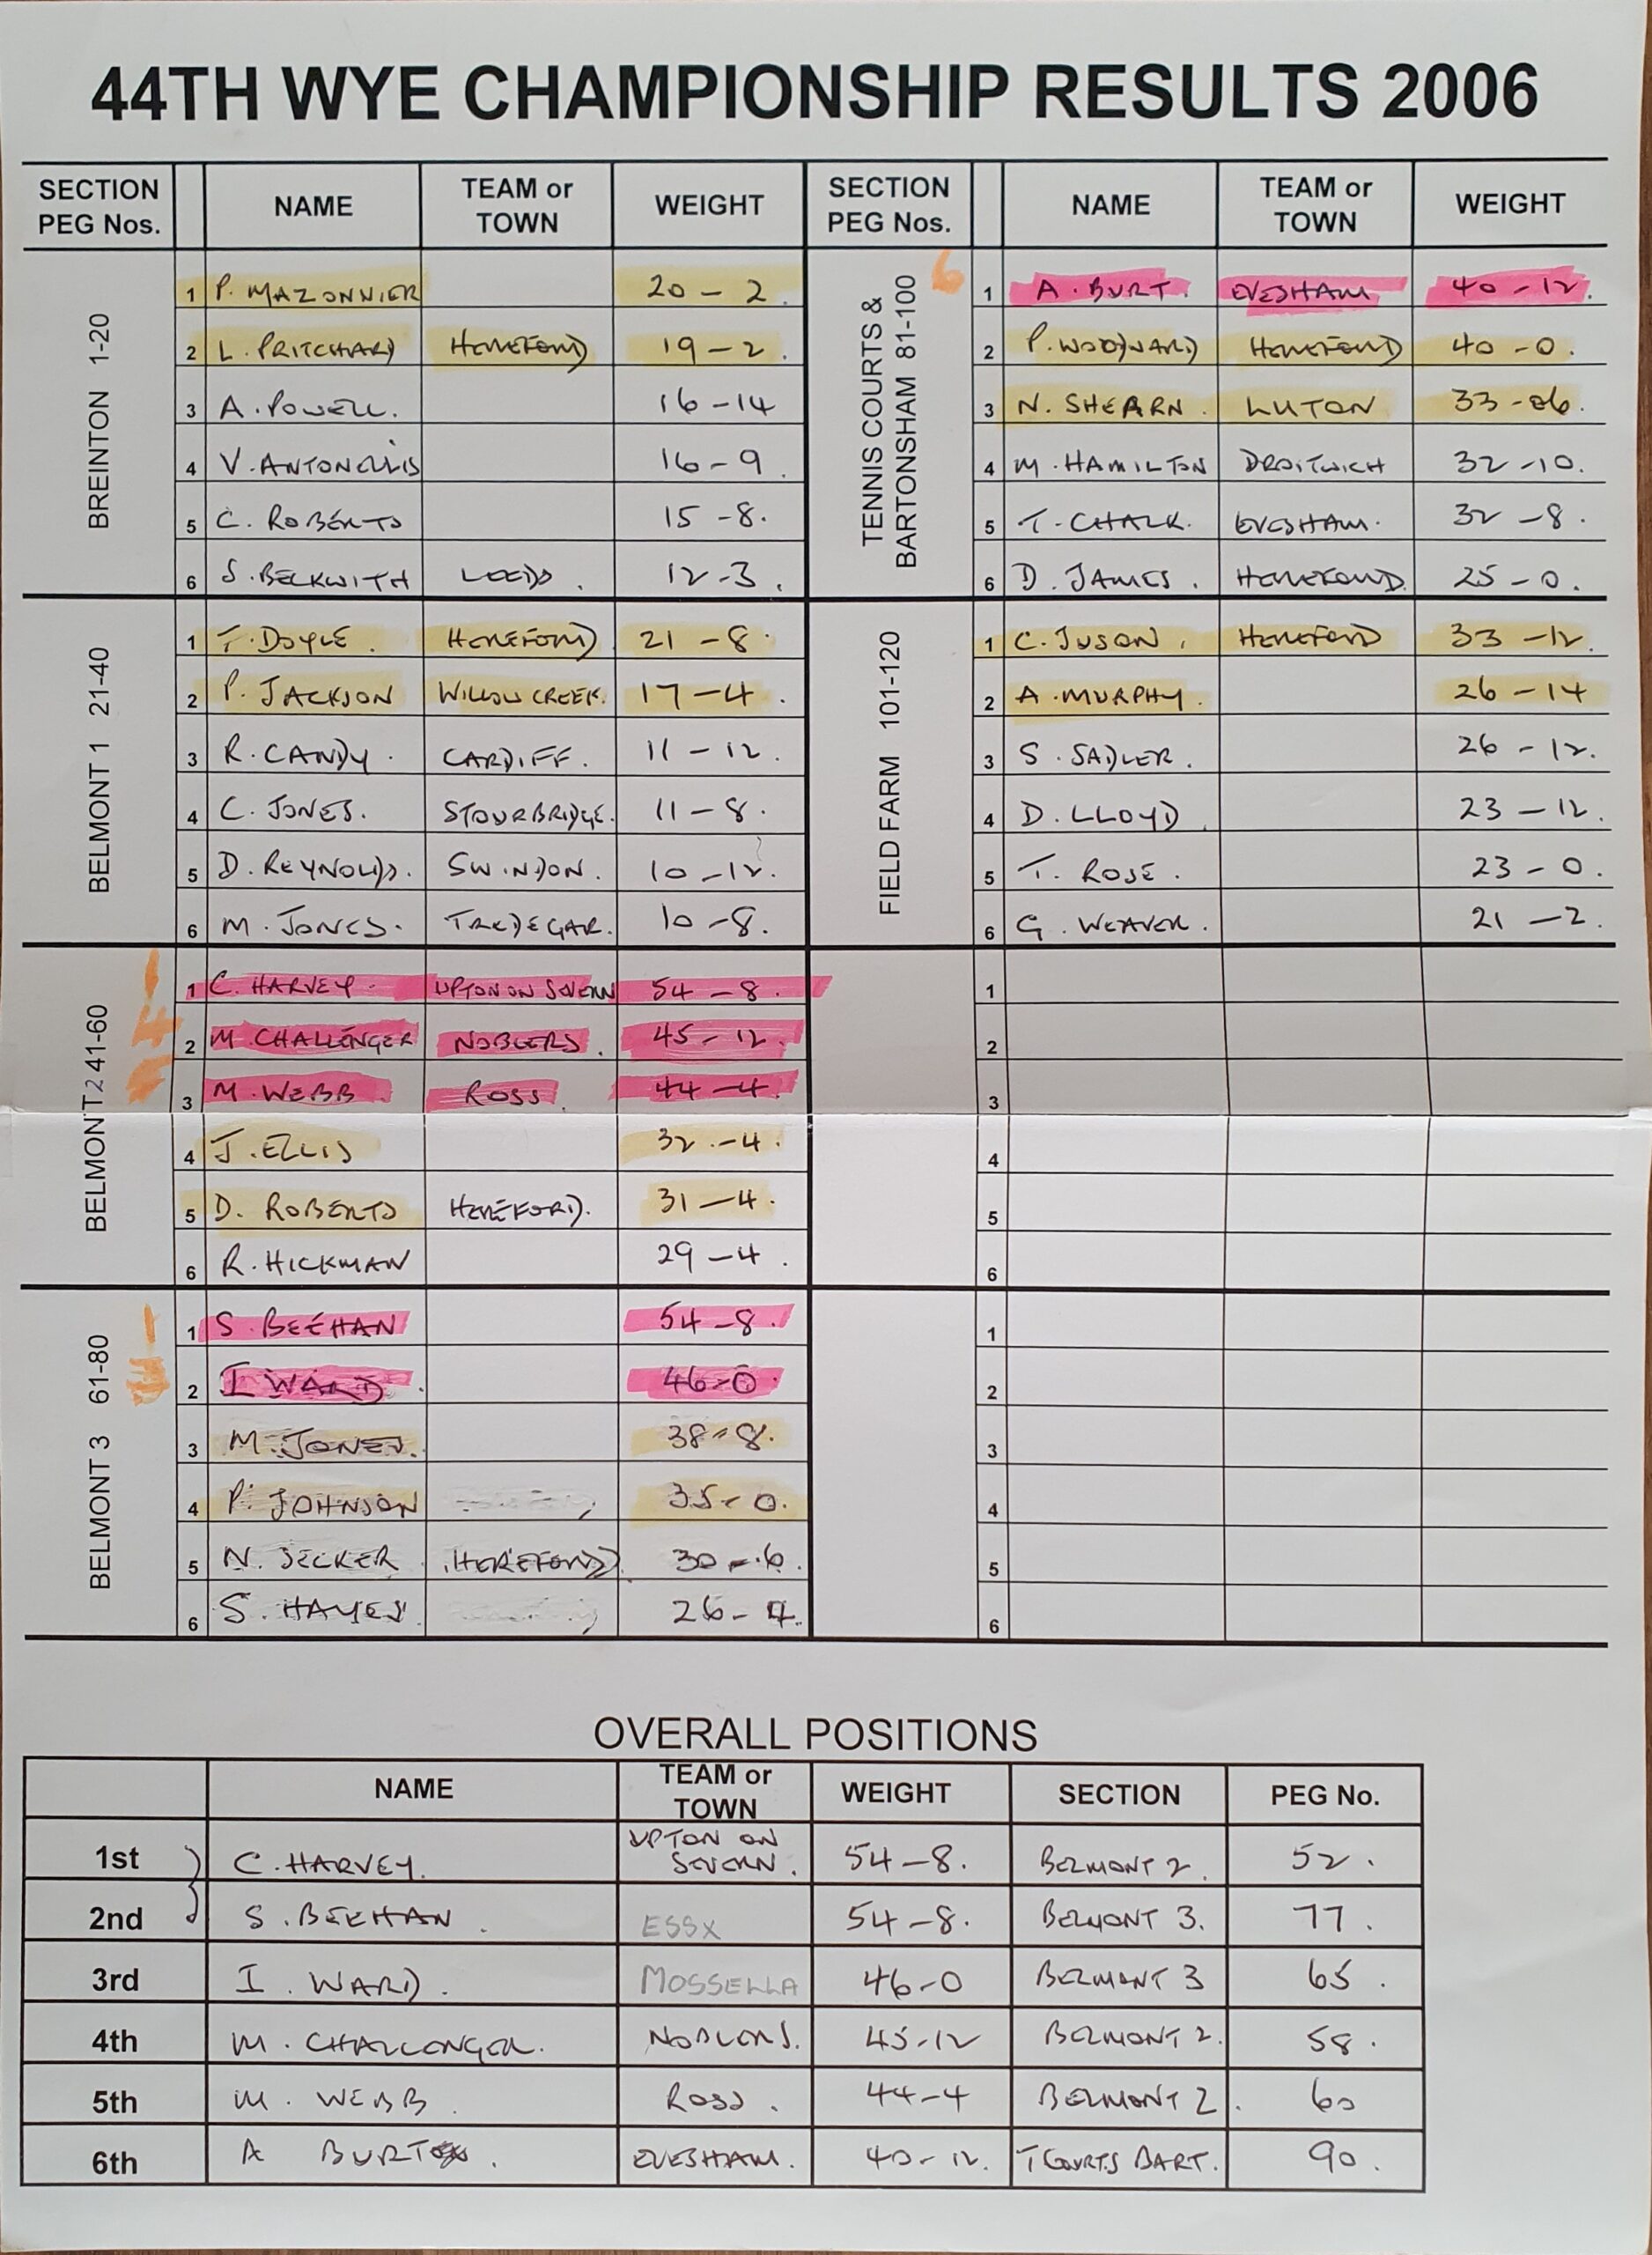 44TH WYE CHAMPIONSHIP RESULTS 2006
SECTION PEG Nos. NAME TEAM or TOWN WEIGHT
BREINTON 1-20
1 P. MAZONNIER 20 - 2
2 L. PRITCHARD HEREFORD 19 - 2
3 A. POWELL. 16 - 14
4 V. ANTONELLIS 16 - 9
5 C. ROBERTS 15 - 8.
6 S. BECKWITH LEEDS 12 - 3.
BELMONT 1 21-40
1 T. DOYLE HEREFORD 21 - 8
2 P. JACKSON WILLOW CREEK. 17 - 4
3 R. CANDY. CARDIFF. 11 - 12.
4 C. JONES. STOURBRIDGE. 11 - 8.
5 D. REYNOLDS. SWINDON. 10 - 12.
6 M. JONES. TREDEGAR. 10 - 8.
BELMONT 2 41-60
1 C. HARVEY. UPTON ON SEVERN 54 - 8.
2 M. CHALLENGER NOBLERS. 45 - 12.
3 M. WEBB ROSS. 44 - 4.
4 J. ELLIS 32 - 4.
5 D. ROBERTS HEREFORD. 31 - 4.
6 R. HICKMAN 29 - 4.
BELMONT 3 61-80
1 S. BEEHAN 54 - 8.
2 I WARD. 46 - 0.
3 M. JONES. 38 - 8.
4 P. JOHNSON 35 - 0.
5 N. SECKER HEREFORD 30 - 6.
6 S. HAYES 26 - 4.
SECTION PEG Nos. NAME TEAM or TOWN WEIGHT
TENNIS COURTS & BARTONSHAM 81-100
6
1 A. BURT. EVESHAM 40 - 12.
2 P. WOODWARD HEREFORD 40 - 0.
3 N. SHEARN. LUTON 33 - 06.
4 M. HAMILTON DROITWICH 32 - 10.
5 T. CHALK. EVESHAM. 32 - 8.
6 D. JAMES. HEREFORD. 25 - 0.
FIELD FARM 101-120
1 C. JUSON. HEREFORD 33 - 12.
2 A. MURPHY. 26 - 14
3 S. SADLER. 26 - 12.
4 D. LLOYD 23 - 12.
5 T. ROSE. 23 - 0.
6 G. WEAVER. 21 - 2.
1
2
3
4
5
6
1
2
3
4
5
6
OVERALL POSITIONS
NAME TEAM or TOWN WEIGHT SECTION PEG No.
1st C. HARVEY. UPTON ON SEVERN. 54 - 8. BELMONT 2. 52.
2nd S. BEEHAN. ESSX 54 - 8. BELMONT 3. 77.
3rd I. WARD. MOSSELLA 46 - 0 BELMONT 3 65.
4th M. CHALLENGER. NOBLERS. 45 - 12 BELMONT 2. 58.
5th M. WEBB. ROSS. 44 - 4 BELMONT 2. 60
6th A BURT. EVESHAM. 40 - 12. T COURTS BART. 90.